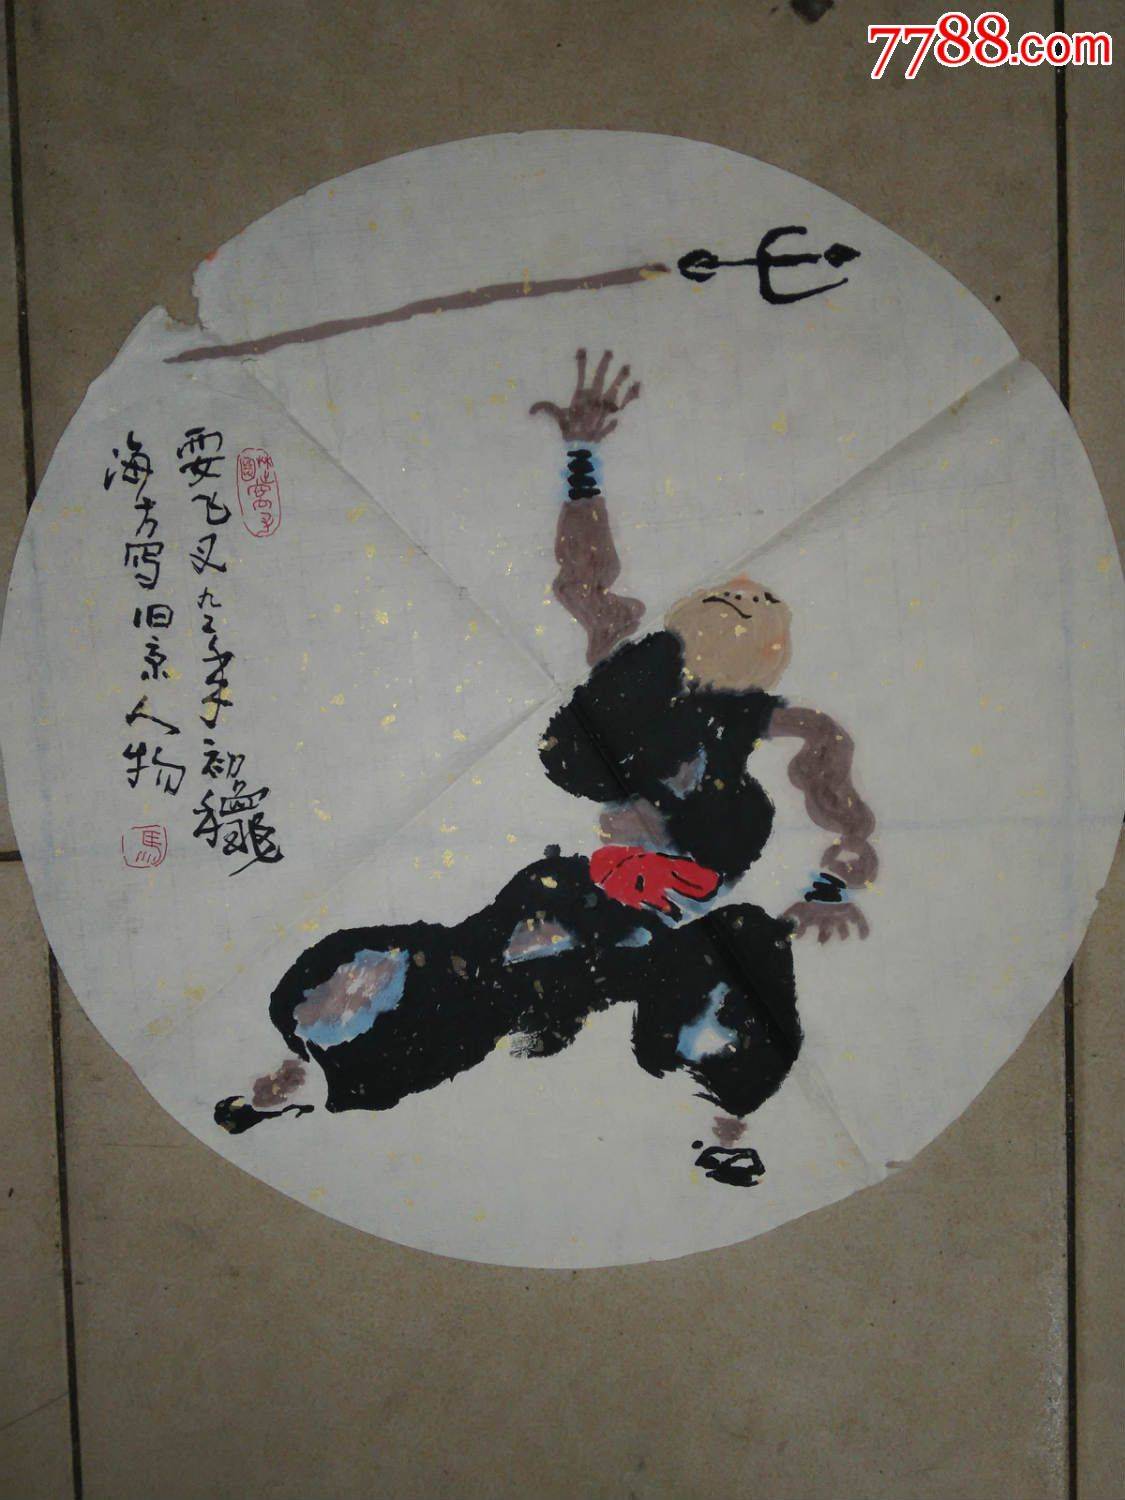 7788.com
耍飞叉九五年初龝
海方写旧京人物
馬